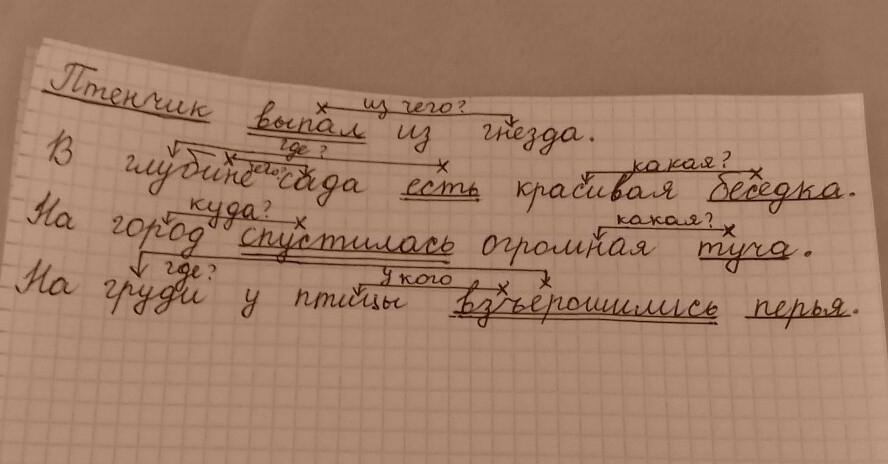 из чего?
Птенчик выпал из гнезда.
где? чего? какая?
В глубине сада есть красивая беседка.
куда? какая?
На город спустилась огромная туча.
где? у кого
На груди у птицы взъерошились перья.